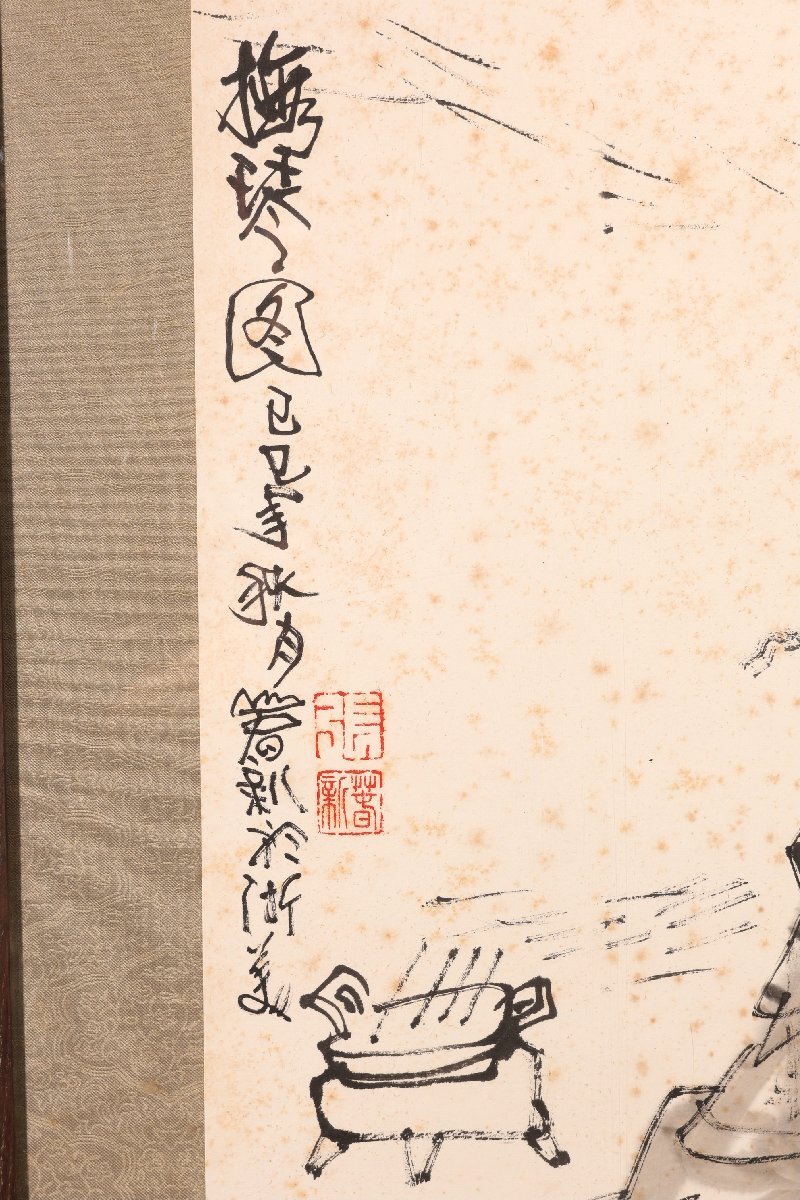 撫琴图己巳年秋月春新於浙美
張
春新